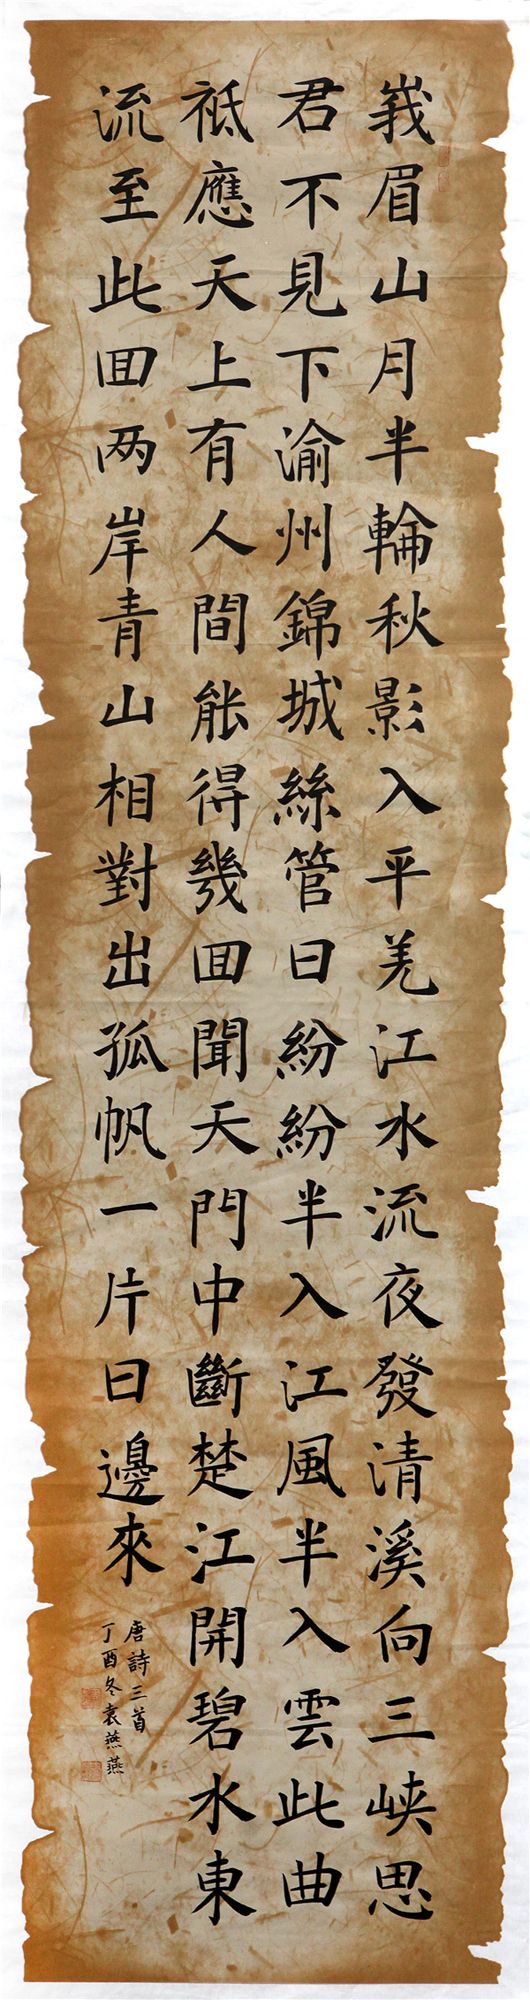 峩眉山月半輪秋影入平羌江水流夜發清溪向三峡思
君不見下渝州錦城絲管日紛紛半入江風半入雲此曲
祗應天上有人間能得幾囬聞天門中斷楚江開碧水東
流至此囬两岸青山相對出孤帆一片日邊來
唐詩三首
丁酉冬袁燕燕